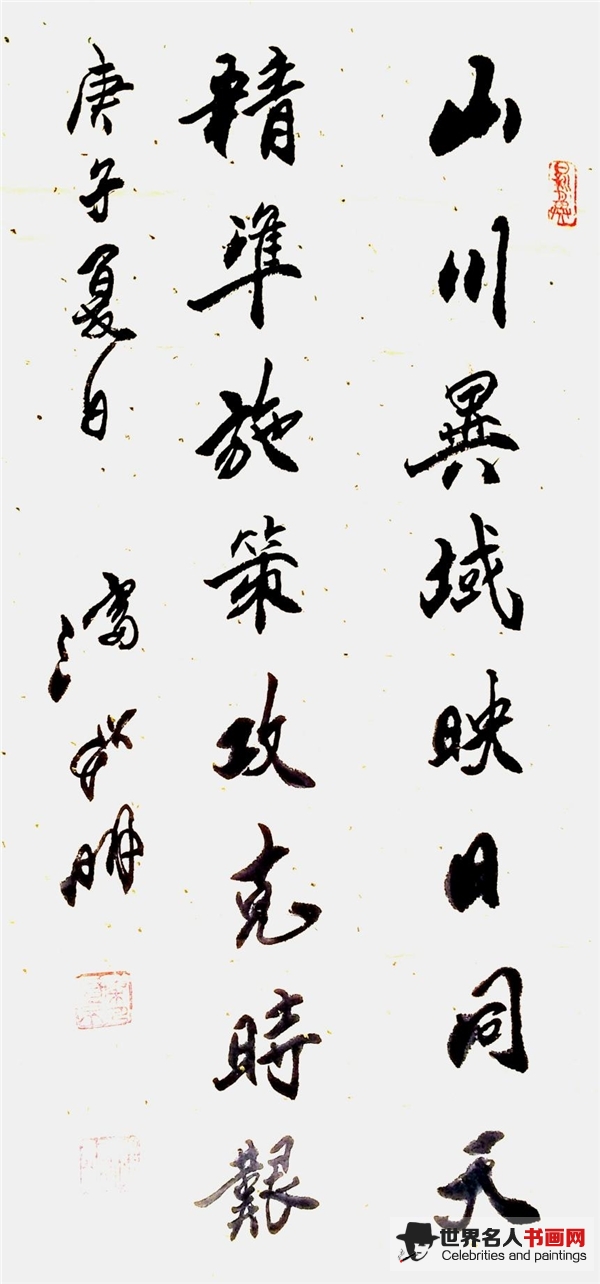 山川異域映日同天
精準施策攻克時艱
庚子夏日 潘
世界名人书画网
Celebrities and paintings